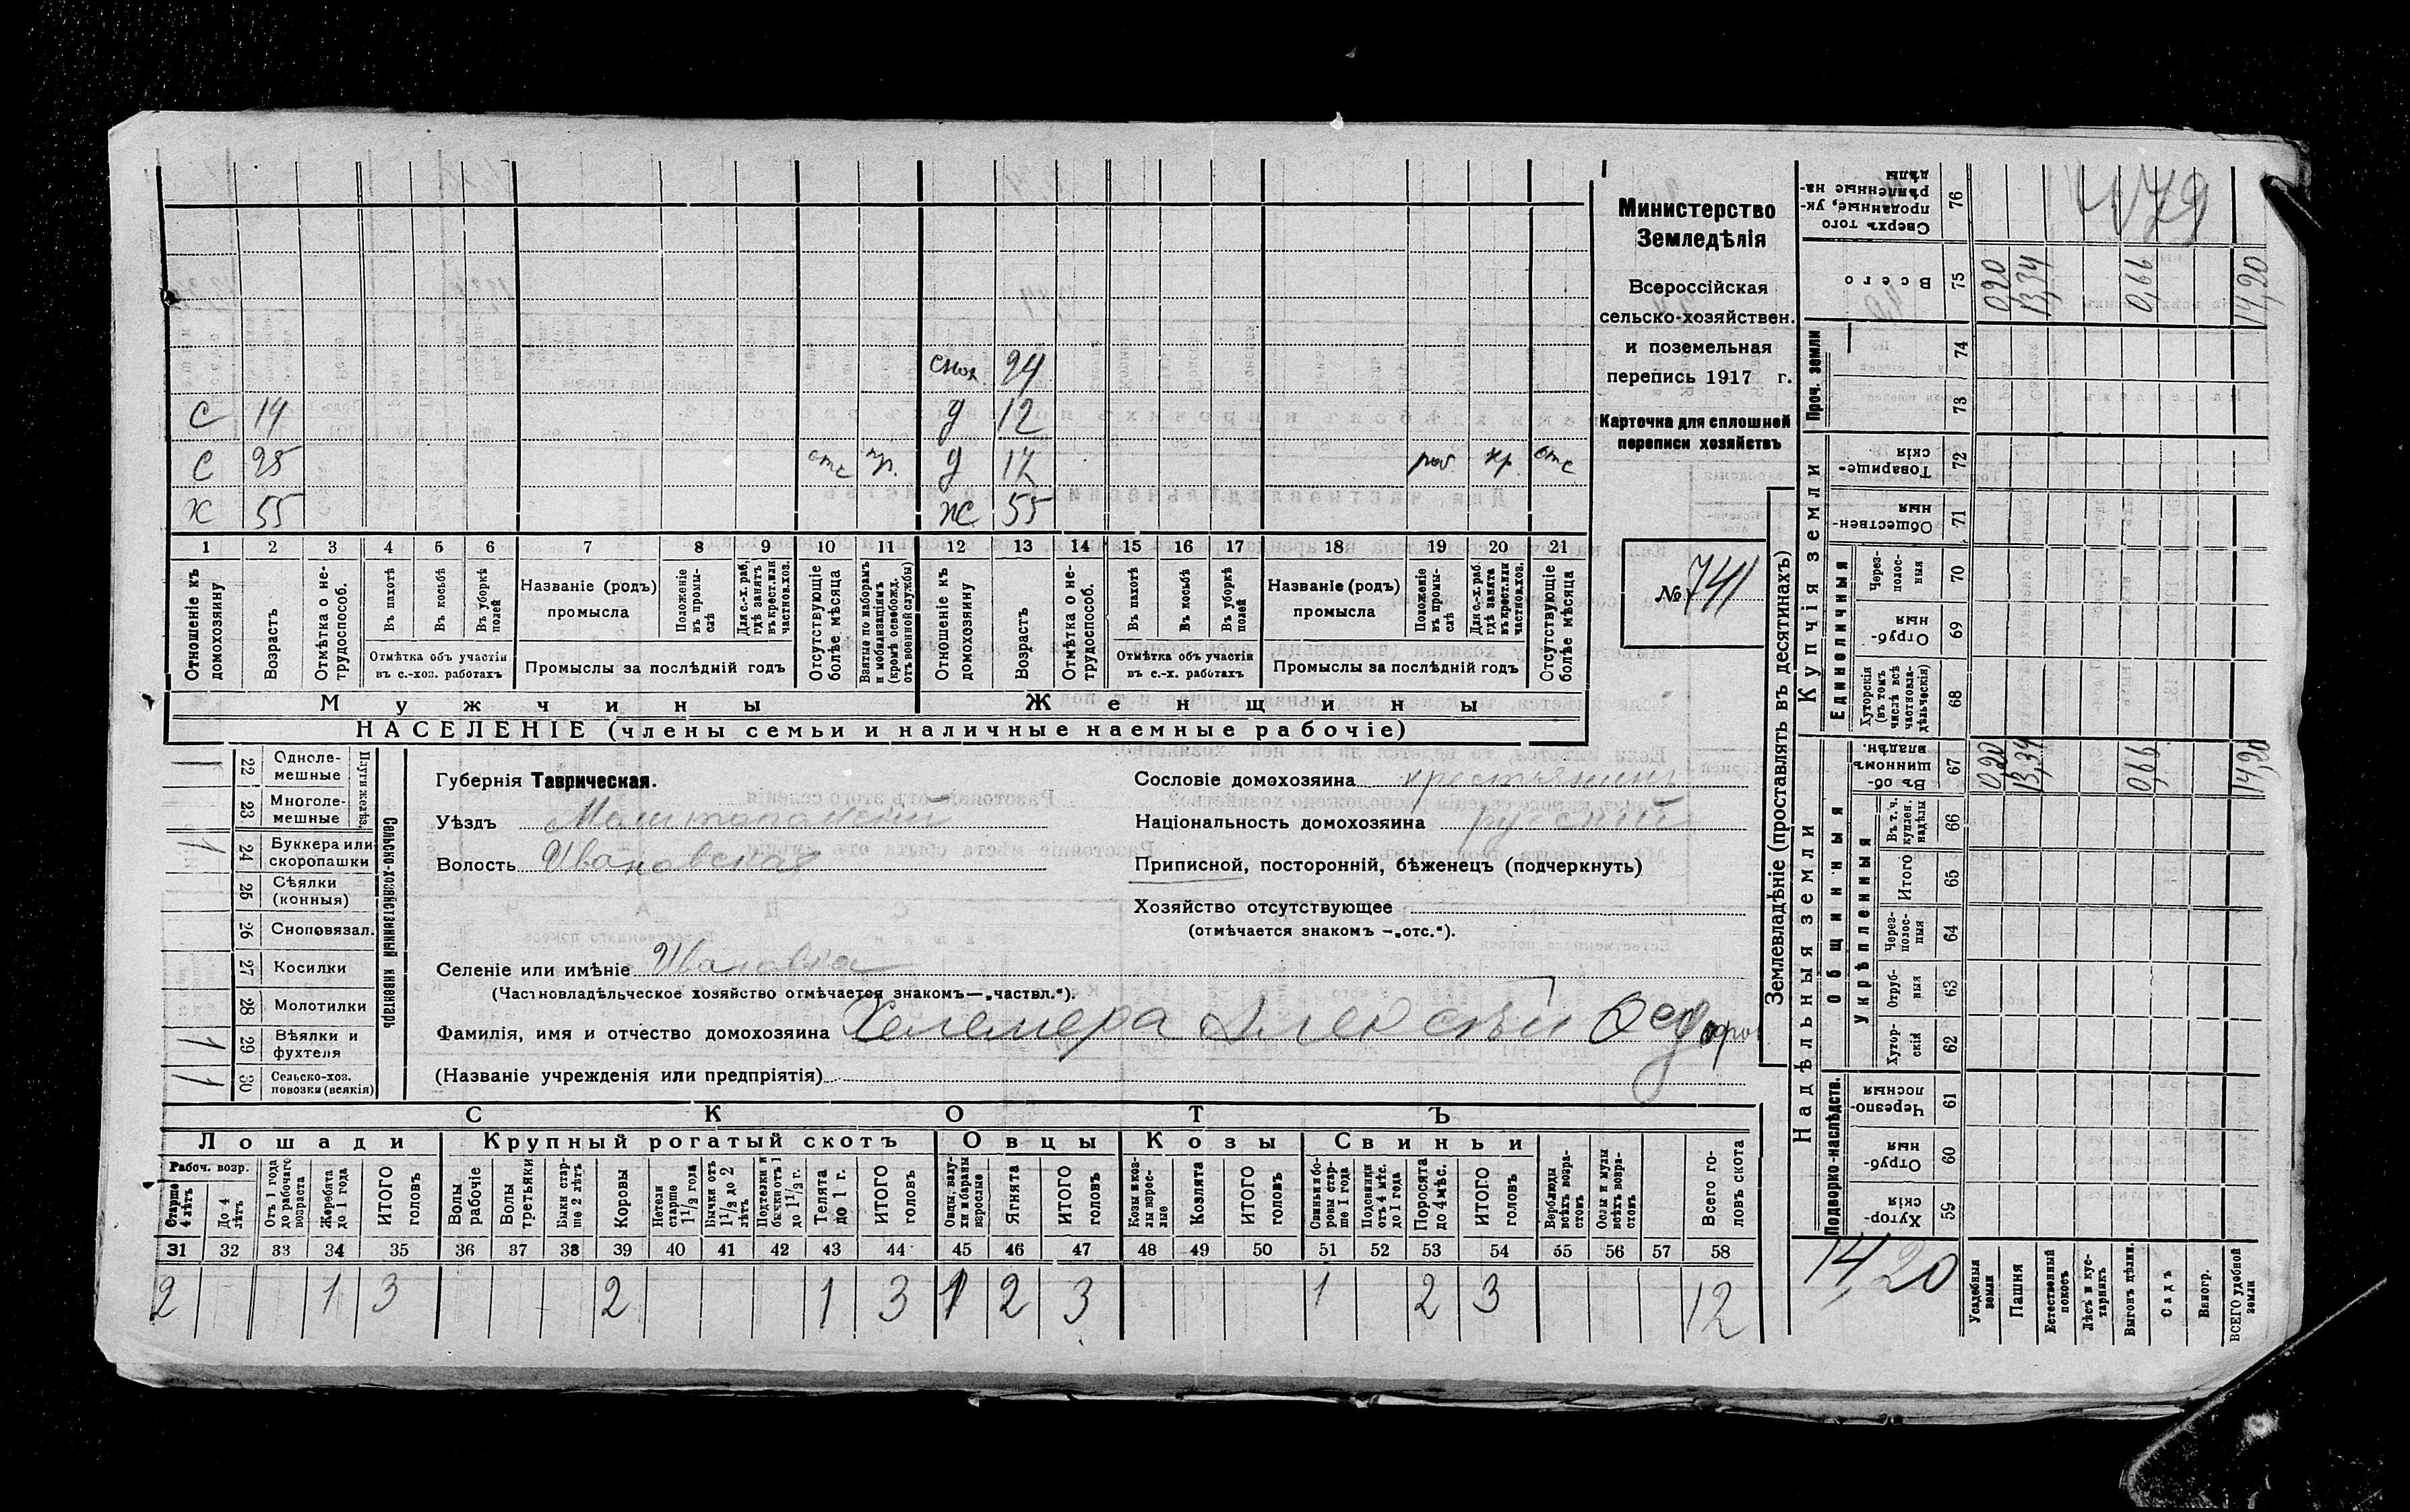 Министерство
Земледѣлія
Всероссійская
сельско-хозяйствен.
и поземельная
перепись 1917 г.
Карточка для сплошной
переписи хозяйствъ
№ 741
479
снох. 24
С 14 д 12
С 25 отс пр. д 17 раб кр. отс
х 55 ж 55
1 2 3 4 5 6 7 8 9 10 11 12 13 14 15 16 17 18 19 20 21
Отношеніе къ домохозяину
Возрастъ
Отмѣтка о не-трудоспособ.
Въ пахотѣ
Въ косьбѣ
Въ уборкѣ полей
Отмѣтка объ участіи въ с.-хоз. работахъ
Названіе (родъ) промысла
Положеніе въ промы-слѣ
Для с.-х. раб. гдѣ занятъ въ крест. или частнов. хоз.
Промыслы за послѣдній годъ
Отсутствующіе болѣе мѣсяца
Взятые по наборамъ и мобилизаціямъ (кромѣ освобожд. отъ военной службы)
Отношеніе къ домохозяину
Возрастъ
Отмѣтка о не-трудоспособ.
Въ пахотѣ
Въ косьбѣ
Въ уборкѣ полей
Отмѣтка объ участіи въ с.-х. работахъ
Названіе (родъ) промысла
Положеніе въ промы-слѣ
Для с.-х. раб. гдѣ занята въ крест. или частнов. хоз.
Промыслы за послѣдній годъ
Отсутствующіе болѣе мѣсяца
Мужчины Женщины
НАСЕЛЕНІЕ (члены семьи и наличные наемные рабочіе)
Сельско-хозяйственный инвентарь
Плуги желѣз.
22 Одноле-мешные
23 Многоле-мешные
1 24 Буккера или скоропашки
25 Сѣялки (конныя)
26 Сноповязал.
27 Косилки
28 Молотилки
1 29 Вѣялки и фухтеля
1 30 Сельско-хоз. повозки (всякія)
Губернія Таврическая.
Уѣздъ
Волость Ивановская
Сословіе домохозяина крестьянинъ
Національность домохозяина русский
Приписной, посторонній, бѣженецъ (подчеркнуть)
Хозяйство отсутствующее
(отмѣчается знакомъ —„отс.“).
Селеніе или имѣніе Ивановка
(Частновладѣльческое хозяйство отмѣчается знакомъ—„частвл.“).
Фамилія, имя и отчество домохозяина Келемера Алексѣй Федоров
(Названіе учрежденія или предпріятія)
СКОТЪ
Лошади Крупный рогатый скотъ Овцы Козы Свиньи
Рабоч. возр.
Старше 4 лѣтъ
До 4 лѣтъ
Отъ 1 года до рабочаго возраста
Жеребята до 1 года
ИТОГО головъ
Волы рабочіе
Волы третьяки
Быки стар-ше 2 лѣтъ
Коровы
Нетели старше 1 1/2 года
Бычки отъ 1 1/2 до 2 лѣтъ
Подтелки и бычки отъ 1 до 1 1/2 г.
Телята до 1 г.
ИТОГО головъ
Овцы, валу-хи и бараны взрослые
Ягнята
ИТОГО головъ
Козы и коз-лы взрос-лые
Козлята
ИТОГО головъ
Свиньи и бо-ровы стар-ше 1 года
Подсвинки отъ 4 мѣс. до 1 года
Поросята до 4 мѣс.
ИТОГО головъ
Верблюды всѣхъ возра-стовъ
Ослы и мулы всѣхъ возра-стовъ
Всего го-ловъ скота
31 32 33 34 35 36 37 38 39 40 41 42 43 44 45 46 47 48 49 50 51 52 53 54 55 56 57 58
2 1 3 2 1 3 1 2 3 1 2 3 12
Землевладѣніе (проставлять въ десятинахъ)
Надѣльныя земли
Купчія земли
Проч. земли
Подворно-наслѣдств.
Общинныя
Укрѣпленныя
Единоличныя
Сверхъ того проданные, ук-рѣпленные на-дѣлы 76
Всего 75 0,20 13,34 0,66 14,20
74
73
Товарище-скія 72
Обществен-ныя 71
Через-полос-ныя 70
Отруб-ныя 69
Хуторскія (въ томъ числѣ всѣ частновла-дѣльческія) 68
Въ об-щинномъ владѣн. 67 0,20 13,34 0,66 14,20
Въ т. ч. куплен. надѣлы 66
Итого 65
Через-полос-ныя 64
Отруб-ныя 63
Хутор-скій 62
Черезпо-лосныя 61
Отруб-ныя 60
Хутор-скія 59
14,20
Усадебныя земли
Пашня
Естественный покосъ
Лѣсъ и кус-тарникъ
Выгонъ цѣлин.
Садъ
Виногр.
ВСЕГО удобной земли